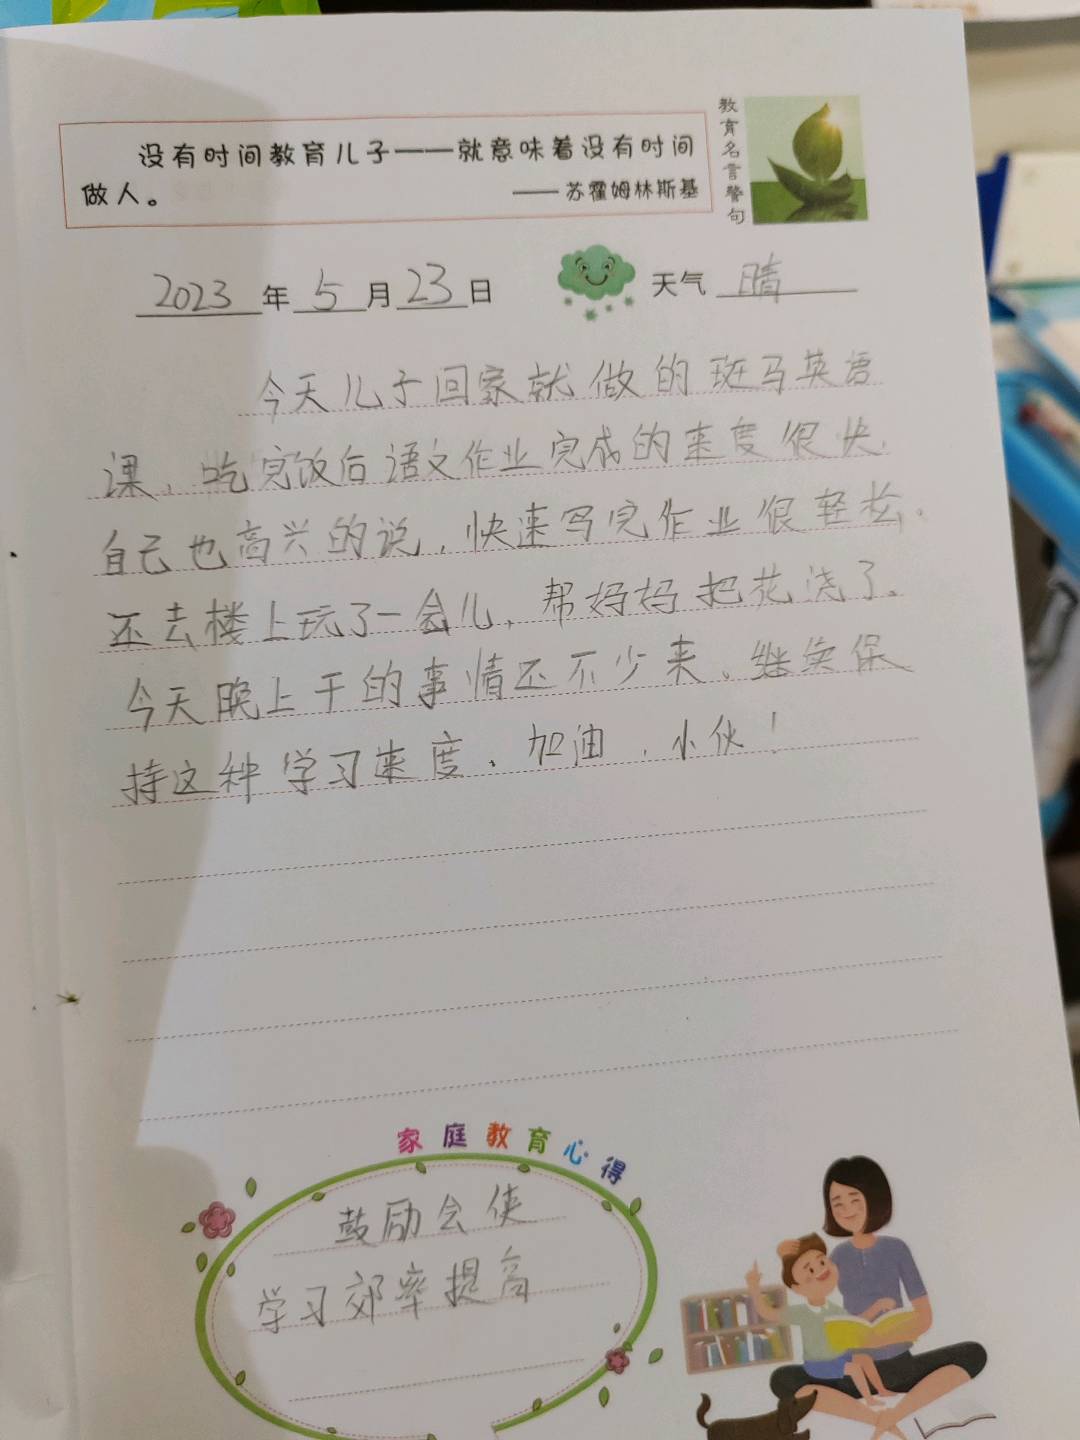 没有时间教育儿子——就意味着没有时间
做人。
——苏霍姆林斯基
教育名言警句
2023年5月23日 天气 晴
今天儿子回家就做的斑马英语
课、吃完饭后语文作业完成的速度很快.
自己也高兴的说,快速写完作业很轻松.
还去楼上玩了一会儿,帮妈妈把花浇了.
今天晚上干的事情还不少来、继续保
持这种学习速度、加油、小伙!
家庭教育心得
鼓励会使
学习效率提高